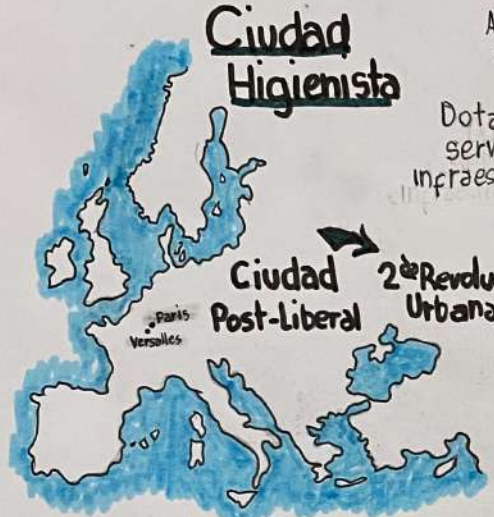 Ciudad
Higienista
A
Dota
serv
infraes
Ciudad
Post-Liberal
2da Revolu
Urbana
Paris
Versalles